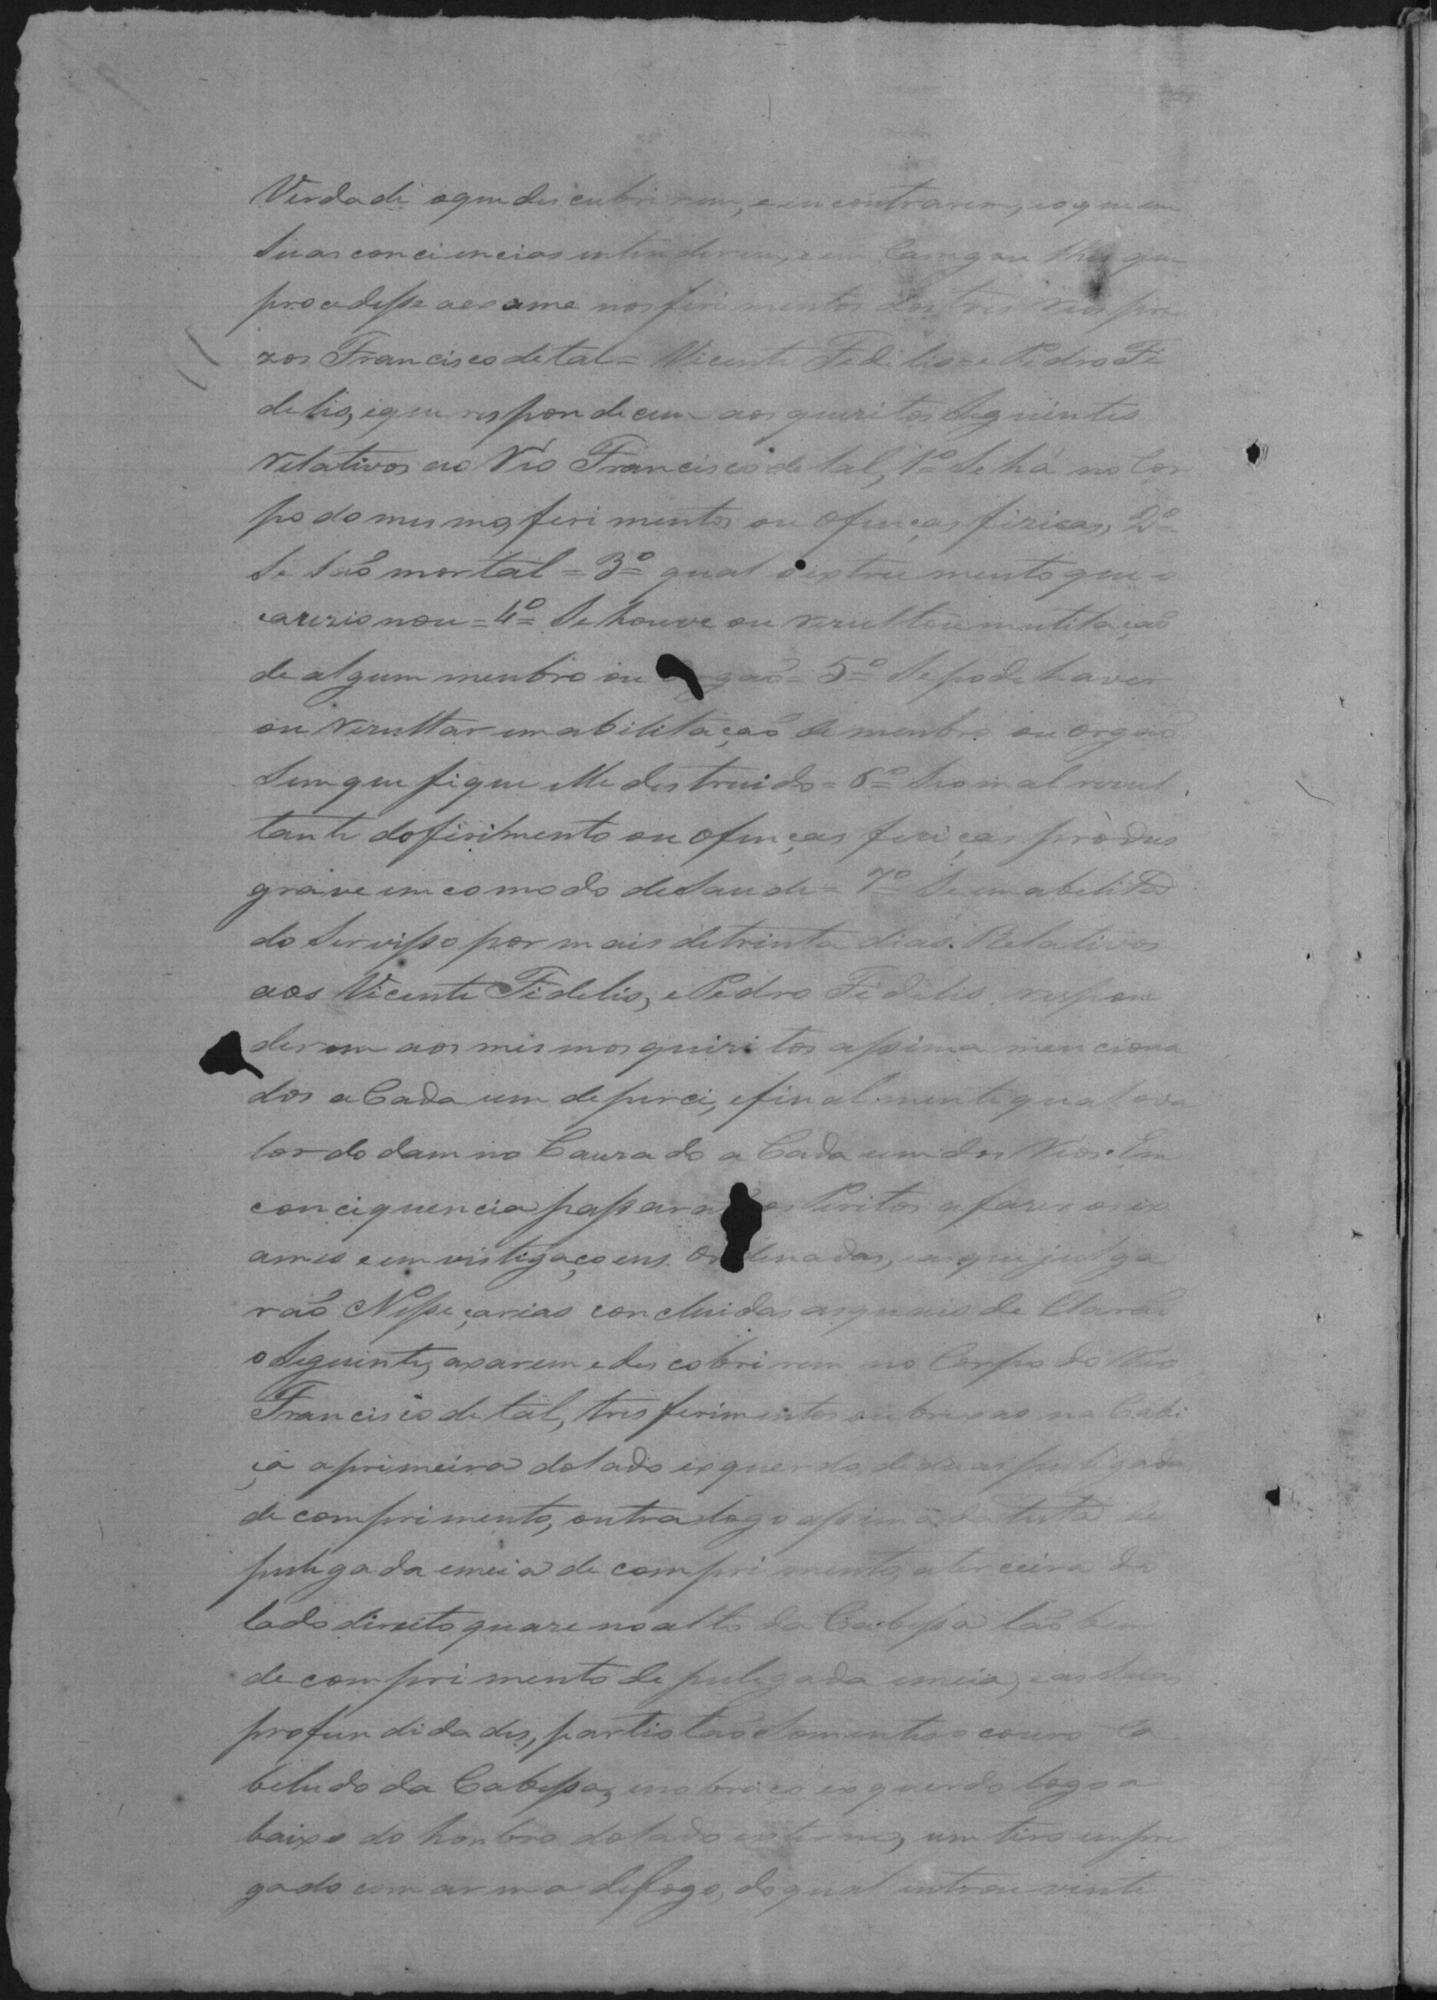 Verdade oque descubrirem, e encontrarem, eoque em
suas conciencias entenderem, e em Carregou lhes que
procedesse aexame nos ferimentos dos tres Reos pre
zos Francisco de tal = Vicente Fidelis e Pedro Fi
delis, eque respondecem aos queritos Seguintes
relativos ao Réo Francisco de tal, 1º Se há no Cor
po do mesmo, ferimentos ou ofenças fizicas, 2º
Se São mortal = 3º qual o extrumento que o
cauzionou = 4º Se houve ou rezultou mutilação
de algum menbro ou orgão = 5º Se pode haver
ou rezultar emabilitação de menbro ou orgão
Sem que fique elle destruido = 6º Se o mal rezul
tante do ferimento ou ofenças fezicas produs
grave emcomodo de Saude = 7º Se emabelita
do Servisso por mais de trinta dias. Relativos
aos Vicente Fidelis, e Pedro Fidelis respon
deram aos mesmos queritos assima menciona
dos a Cada um de perci, e finalmente qual o va
lor do damno Cauzado a Cada um dos Reos. Em
conciquencia passarão os Peritos a fazer os ex
ames e emvistigaçoens Ordenadas, e as que julga
rão Nesseçarias concluidas as quais de Clarão
o Seguinte, axarem e descobrirem no Corpo do Reo
Francisco de tal, tres ferimentos na Cabe
ça aprimeira dolado exquerdo, de duas pulegadas
de comprimento, outra logo assima da testa de
pulegada emeia de comprimento, a terceira do
lado direito quaze no alto da Cabessa tão bem
de comprimento de pulegada emeia, e as Suas
profundidades, partio tão Somente o couro Ca
beludo da Cabessa, e no braço exquerdo logo a
baixo do honbro dolado externo, um tiro enpre
gado com arma defogo, do qual entrou vinte